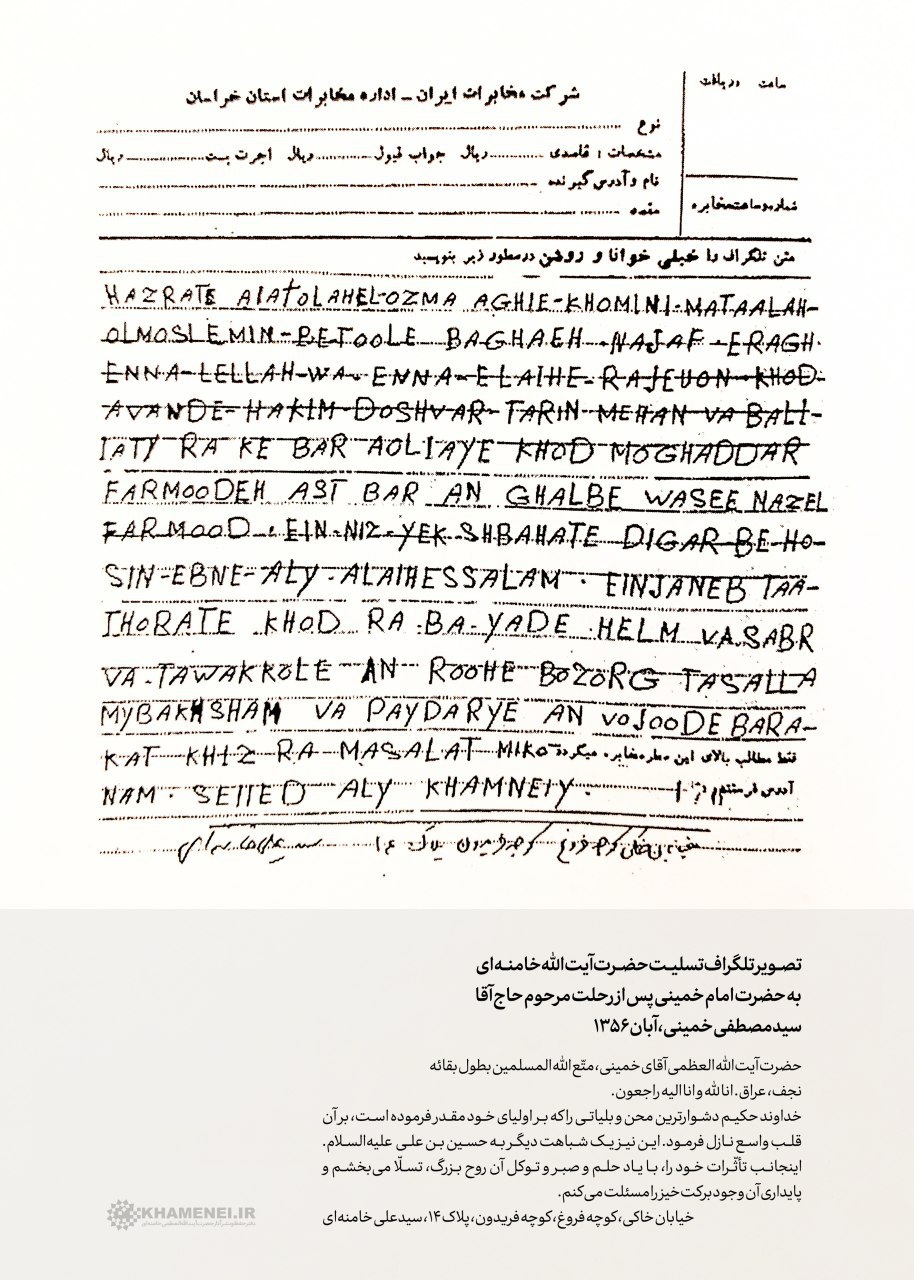 ساعت دریافت
شرکت مخابرات ایران ـ اداره مخابرات استان خراسان
نوع
مشخصات : قاصدی ریال جواب قبول ریال اجرت پست ریال
نام و آدرس گیرنده
مقصد
شماره و ساعت مخابره
متن تلگراف را خیلی خوانا و روشن در سطور زیر بنویسید
HAZRATE AIATOLAHEL-OZMA AGHIE-KHOMINI-MATAALAH-
OLMOSLEMIN-BETOOLE BAGHAEH-NAJAF-ERAGH.
ENNA-LELLAH-WA-ENNA-ELAIHE-RAJEUON-KHOD-
AVANDE-HAKIM-DOSHVAR-TARIN-MEHAN VA BALI-
IATY RA KE BAR AOLIAYE KHOD MOGHADDAR
FARMOODEH AST BAR AN GHALBE WASEE NAZEL
FARMOOD. EIN-NIZ-YEK-SHBAHATE DIGAR-BE-HO-
SIN-EBNE-ALY-ALAIHESSALAM. EINJANEB TAA-
THORATE KHOD RA-BA-YADE HELM VA SABR
VA-TAWAKKOLE AN ROOHE BOZORG TASALLA
MYBAKHSHAM VA PAYDARYE AN VOJOODE BARA-
KAT KHIZ RA MASALAT MIKO- فقط مطالب بالای این سطر مخابره میگردد
NAM. SEIIED ALY KHAMNEIY. آدرس فرستنده
خیابان خاکی کوچه فروغ کوچه فریدون پلاک ۱۴ سید علی خامنه‌ای
تصویر تلگراف تسلیت حضرت آیت‌الله خامنه‌ای
به حضرت امام خمینی پس از رحلت مرحوم حاج آقا
سید مصطفی خمینی، آبان ۱۳۵۶
حضرت آیت‌الله العظمی آقای خمینی، متّع‌الله المسلمین بطول بقائه
نجف، عراق. انا لله و انا الیه راجعون.
خداوند حکیم دشوارترین محن و بلیاتی را که بر اولیای خود مقدر فرموده است، بر آن
قلب واسع نازل فرمود. این نیز یک شباهت دیگر به حسین بن علی علیه‌السلام.
اینجانب تأثّرات خود را، با یاد حلم و صبر و توکل آن روح بزرگ، تسلّا می‌بخشم و
پایداری آن وجود برکت خیز را مسئلت می‌کنم.
خیابان خاکی، کوچه فروغ، کوچه فریدون، پلاک ۱۴، سیدعلی خامنه‌ای
KHAMENEI.IR